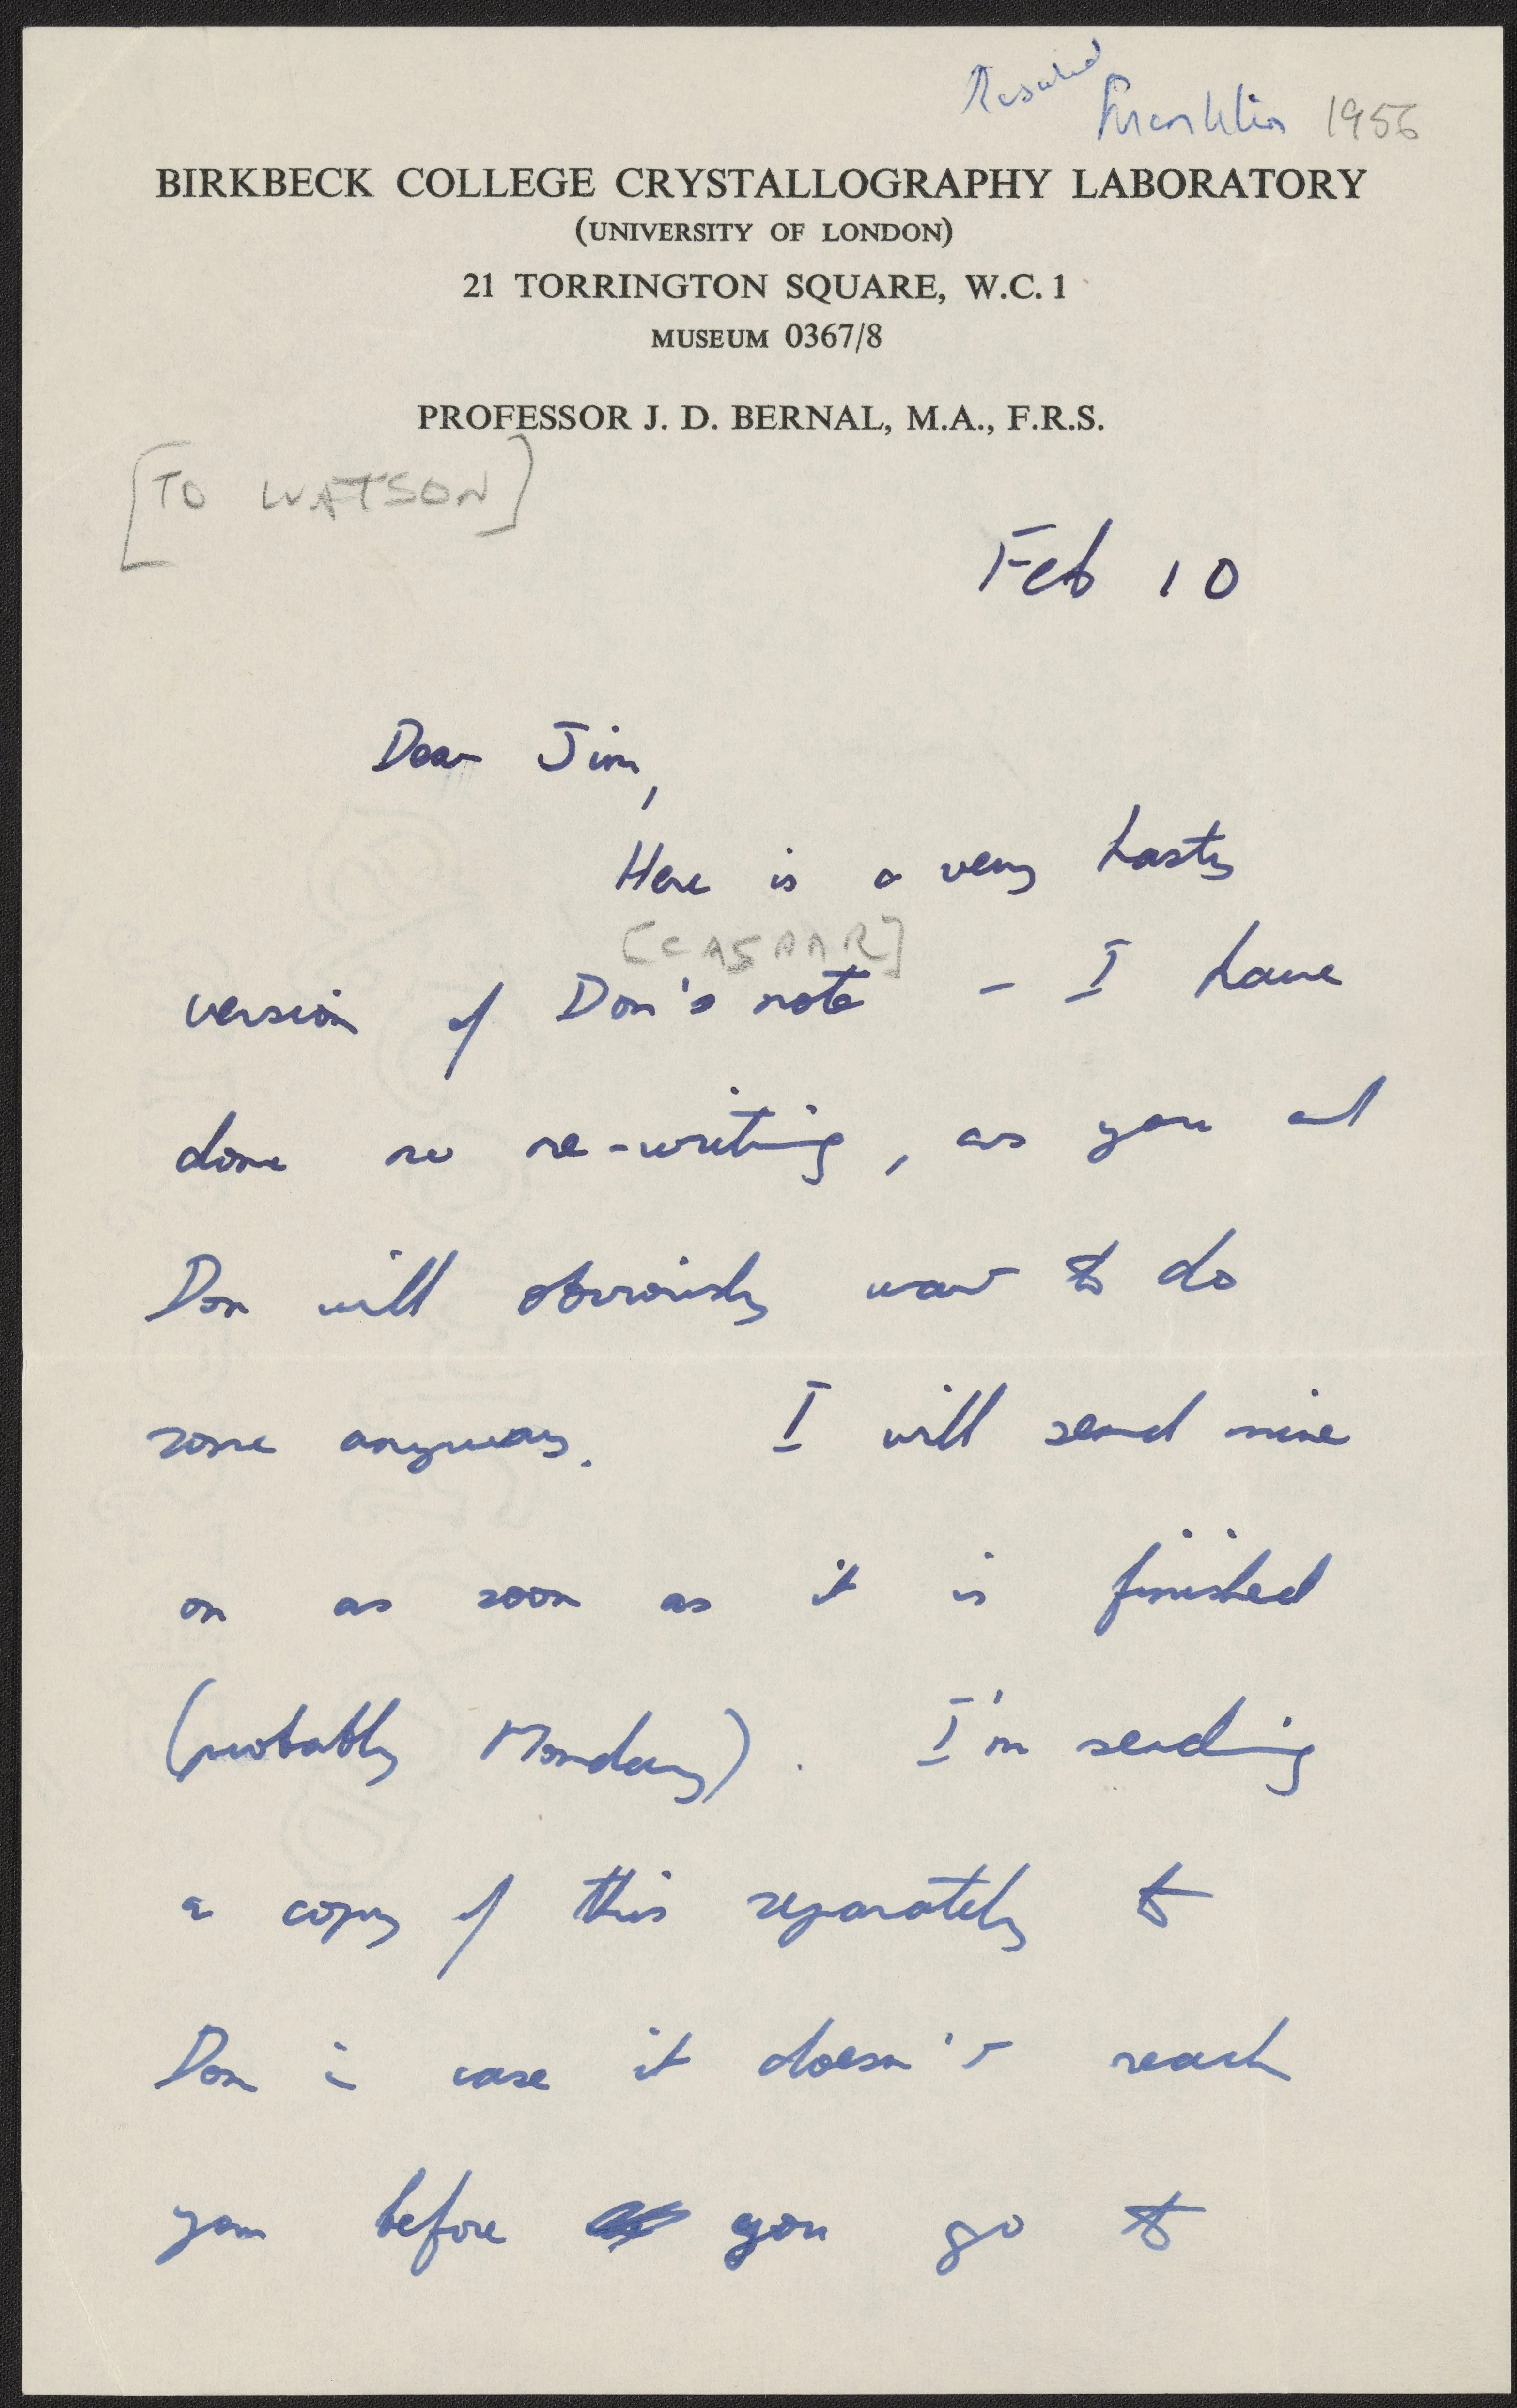 Rosalind Franklin 1956
BIRKBECK COLLEGE CRYSTALLOGRAPHY LABORATORY
(UNIVERSITY OF LONDON)
21 TORRINGTON SQUARE, W.C. 1
MUSEUM 0367/8
PROFESSOR J. D. BERNAL, M.A., F.R.S.
[TO WATSON]
Feb 10
Dear Jim,
Here is a very hasty
[CASPAR]
version of Don's note - I have
done no re-writing, as you and
Don will obviously want to do
some anyway. I will send mine
on as soon as it is finished
(probably Monday). I'm sending
a copy of this separately to
Don in case it doesn't reach
you before you go to